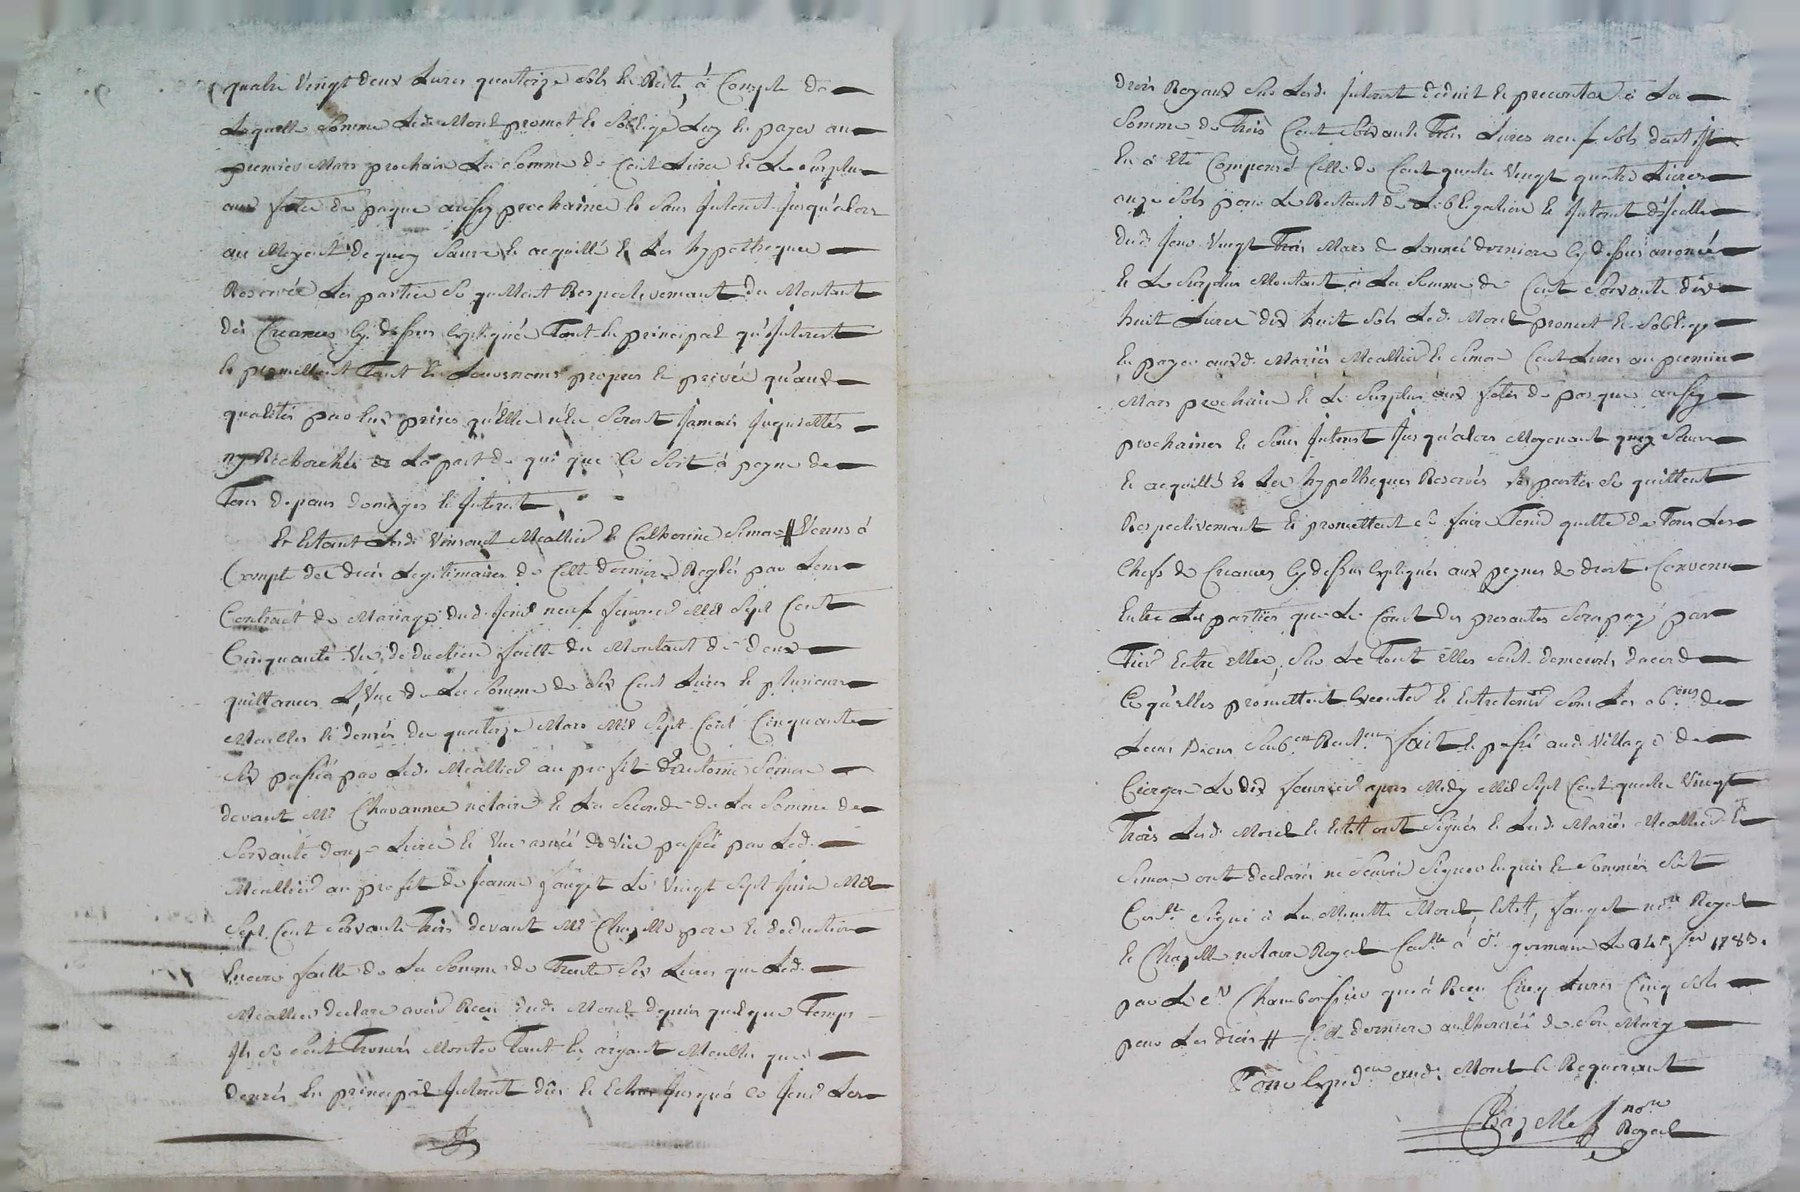 quatre Vingt deux Livres quatorze sols de Reste à Compte de
Laquelle Somme Led. Morel promet et S'oblige Luy en payer au
premier Mars prochain La Somme de Cent Livres et Le Surplus
aux fetes de paque aussy prochaine et Sans Interest Jusqu'alors
au Moyent de quoy Sauve le acquitté et Les hypotheques
Reservée Les parties Se quittent Respectivement du Montant
des Creances Cy dessus Expliquée Tant En principal qu'Interest
et promettent Tant En Leurs noms propres et privée qu'aux
qualités par Eux prises qu'Elles n'En Seront Jamais Inquiettés
ny Recherchés de La part de qui que Ce Soit à peyne de
Tous depans domages et Interest
Et Etant Lesd. Vinsant Meallier et Catherine Simon # Venus à
Compt des droits Legitimaires de Cette derniere Reglés par Leur
Contract de Mariage dud. Jour neuf fevrier Mil Sept Cent
Cinquante deduction faitte du Montant de deux
quittances L'Une de La Somme de Six Cent Livres et plusieurs
Meubles et denrés du quatorze Mars Mil Sept Cent Cinquante
Six passée par Led. Meallier au profit d'Antoine Simon
devant Me Chavannes notaire et La Seconde de La Somme de
Soixante douze Livres et Une année de Vie passée par Led.
Meallier au profit de Jeanne fauget Le Vingt Sept Juin Mil
Sept Cent Soixante Trois devant Me Chazelle pere et deduction
Encore faitte de La Somme de Trente Six Livres que Led.
Meallier declare avoir Reçu dud. Morel depuis quelque Temps
Ils Se Sont Trouvés Monter Tant En argent Meubles que
denrés En principal Interest dûs et Echus Jusqu'à Ce Jour Les
droits Royaux Sur Lesd. Interest deduit et precompté à La
Somme de Trois Cent Soixante Trois Livres neuf Sols dont Il
En a Eté Compensé Celle de Cent quatre Vingt quatre Livres
onze Sols pour Le Restant de L'obligation et Interest d'Icelle
dud. Jour Vingt Trois Mars de L'année derniere Cy dessus anoncée
et Le Surplus Montant à La Somme de Cent Soixante dix
huit Livres dix huit Sols Led. Morel promet et S'oblige
En payer auxd. Mariés Meallier et Simon Cent Livres au premier
Mars prochain et Le Surplus aux fetes de paque aussy
prochaines et Sans Interest Jusqu'alors Moyenant quoy Sauve
le acquitté et Les hypotheques Reservés Les parties Se quittent
Respectivement et promettent Se faire Tenir quitte de Tous Les
Chefs de Creances Cy dessus Expliqués aux peynes de droit Convenu
Entre Les parties que Le Cout des presantes Sera payé par
Tiers Entre Elles, Sur Le Tout Elles Sont demeurés d'acord
Ce qu'elles promettent Executer et Entretenir Sous Les obons de
Leurs Biens Soubon Renton fait et passé aud. Village de
Cierges Le dix fevrier apres Midy Mil Sept Cent quatre Vingt
Trois Led. Morel et ont Signés et Lesd. Mariés Meallier et
Simon ont declarés ne Sçavoir Signer Enquis et Sommés Soit
Signé à La Minutte Morel, fauget nore Royal
et Chazelle notaire Royal à St germain Le 24e fer 1783.
par Le Sr qui à Reçu Cinq Livres Cinq Sols
pour Les droits # Cette derniere authorisée de Son Mary
Pour Expedon aud. Morel Ce Requerant
Chazelle
nore
Royal